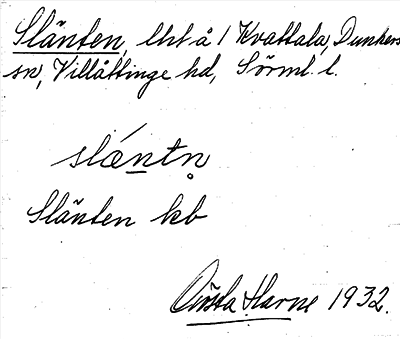 Slänten, lht å 1 Kvattala, Dunkers
sn, Villåttinge hd, Sörml. l.
slǽntn̥
Slänten kb
Gösta Harne 1932.